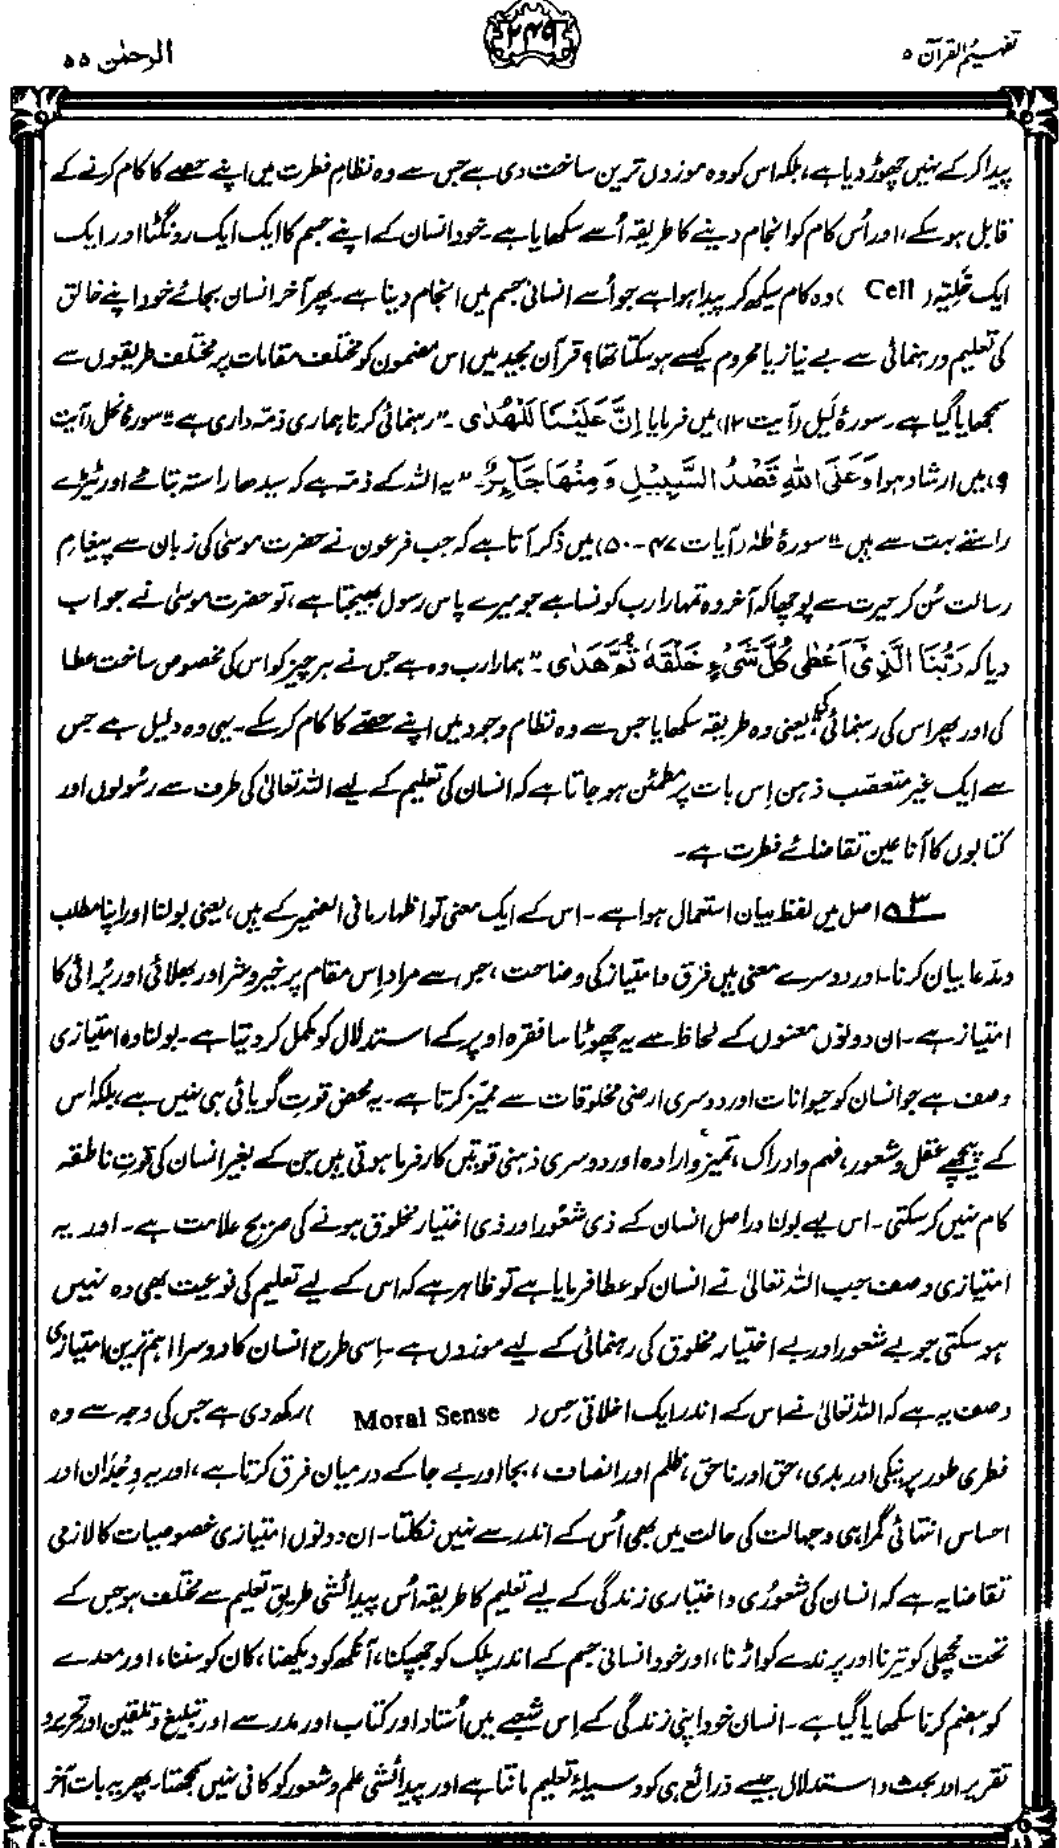 تفہیم القرآن ۵
۲۴۹
الرحمٰن ۵۵
پیدا کر کے نہیں چھوڑ دیا ہے، بلکہ اس کو وہ موزوں ترین ساخت دی ہے جس سے وہ نظامِ فطرت میں اپنے حصے کا کام کرنے کے
قابل ہو سکے، اور اُس کام کو انجام دینے کا طریقہ اُسے سکھایا ہے۔ خود انسان کے اپنے جسم کا ایک ایک رونگٹا اور ایک
ایک خَلِیّہ (Cell) وہ کام سیکھ کر پیدا ہوا ہے جو اُسے انسانی جسم میں انجام دینا ہے۔ پھر آخر انسان بجائے خود اپنے خالق
کی تعلیم و رہنمائی سے بے نیاز یا محروم کیسے ہو سکتا تھا؟ قرآن مجید میں اس مضمون کو مختلف مقامات پر مختلف طریقوں سے
سمجھایا گیا ہے۔ سورۂ لَیل (آیت ۱۲) میں فرمایا اِنَّ عَلَیْنَا لَلْھُدٰی ۔ "رہنمائی کرنا ہماری ذمّہ داری ہے"۔ سورۂ نحل (آیت
۹) میں ارشاد ہوا وَعَلَی اللّٰہِ قَصْدُ السَّبِیْلِ وَمِنْھَا جَآئِرٌ۔ "یہ اللہ کے ذمّہ ہے کہ سیدھا راستہ بتائے اور ٹیڑھے
راستے بہت سے ہیں"۔ سورۂ طٰہٰ (آیات ۴۷-۵۰) میں ذکر آتا ہے کہ جب فرعون نے حضرت موسیٰ کی زبان سے پیغامِ
رسالت سُن کر حیرت سے پوچھا کہ آخر وہ تمہارا رب کونسا ہے جو میرے پاس رسول بھیجتا ہے، تو حضرت موسیٰ نے جواب
دیا کہ رَبُّنَا الَّذِیْٓ اَعْطٰی کُلَّ شَیْءٍ خَلْقَہٗ ثُمَّ ھَدٰی ۔ "ہمارا رب وہ ہے جس نے ہر چیز کو اس کی مخصوص ساخت عطا
کی اور پھر اس کی رہنمائی کی" یعنی وہ طریقہ سکھایا جس سے وہ نظامِ وجود میں اپنے حصّے کا کام کر سکے۔ یہی وہ دلیل ہے جس
سے ایک غیر متعصّب ذہن اِس بات پر مطمئن ہو جاتا ہے کہ انسان کی تعلیم کے لیے اللہ تعالیٰ کی طرف سے رسُولوں اور
کتابوں کا آنا عین تقاضائے فطرت ہے۔
۳؎ اصل میں لفظ بیان استعمال ہوا ہے۔ اس کے ایک معنی تو اظہارِ مافی الضمیر کے ہیں، یعنی بولنا اور اپنا مطلب
و مدّعا بیان کرنا۔ اور دوسرے معنی ہیں فرق و امتیاز کی وضاحت، جس سے مراد اِس مقام پر خیر و شر اور بھلائی اور بُرائی کا
امتیاز ہے۔ ان دونوں معنوں کے لحاظ سے یہ چھوٹا سا فقرہ اوپر کے استدلال کو مکمل کر دیتا ہے۔ بولنا وہ امتیازی
وصف ہے جو انسان کو حیوانات اور دوسری ارضی مخلوقات سے ممیّز کرتا ہے۔ یہ محض قوتِ گویائی ہی نہیں ہے، بلکہ اس
کے پیچھے عقل و شعور، فہم و ادراک، تمیز و ارادہ اور دوسری ذہنی قوتیں کارفرما ہوتی ہیں جن کے بغیر انسان کی قوتِ ناطقہ
کام نہیں کر سکتی۔ اس لیے بولنا دراصل انسان کے ذی شعُور اور ذی اختیار مخلوق ہونے کی صریح علامت ہے۔ اور یہ
امتیازی وصف جب اللہ تعالیٰ نے انسان کو عطا فرمایا ہے تو ظاہر ہے کہ اس کے لیے تعلیم کی نوعیت بھی وہ نہیں
ہو سکتی جو بے شعور اور بے اختیار مخلوق کی رہنمائی کے لیے موزوں ہے۔ اِسی طرح انسان کا دوسرا اہم ترین امتیازی
وصف یہ ہے کہ اللہ تعالیٰ نے اس کے اندر ایک اخلاقی حِس (Moral Sense) رکھ دی ہے جس کی وجہ سے وہ
فطری طور پر نیکی اور بدی، حق اور ناحق، ظلم اور انصاف، بجا اور بے جا کے درمیان فرق کرتا ہے، اور یہ وِجْدان اور
احساس انتہائی گمراہی و جہالت کی حالت میں بھی اُس کے اندر سے نہیں نکلتا۔ ان دونوں امتیازی خصوصیات کا لازمی
تقاضا یہ ہے کہ انسان کی شعوری و اختیاری زندگی کے لیے تعلیم کا طریقہ اُس پیدائشی طریقِ تعلیم سے مختلف ہو جس کے
تحت مچھلی کو تیرنا اور پرندے کو اڑنا، اور خود انسانی جسم کے اندر پلک کو جھپکنا، آنکھ کو دیکھنا، کان کو سننا، اور معدے
کو ہضم کرنا سکھایا گیا ہے۔ انسان خود اپنی زندگی کے اِس شعبے میں اُستاد اور کتاب اور مدرسے اور تبلیغ و تلقین اور تحریر و
تقریر اور بحث و استدلال جیسے ذرائع ہی کو وسیلۂ تعلیم مانتا ہے اور پیدائشی علم و شعور کو کافی نہیں سمجھتا۔ پھر یہ بات آخر